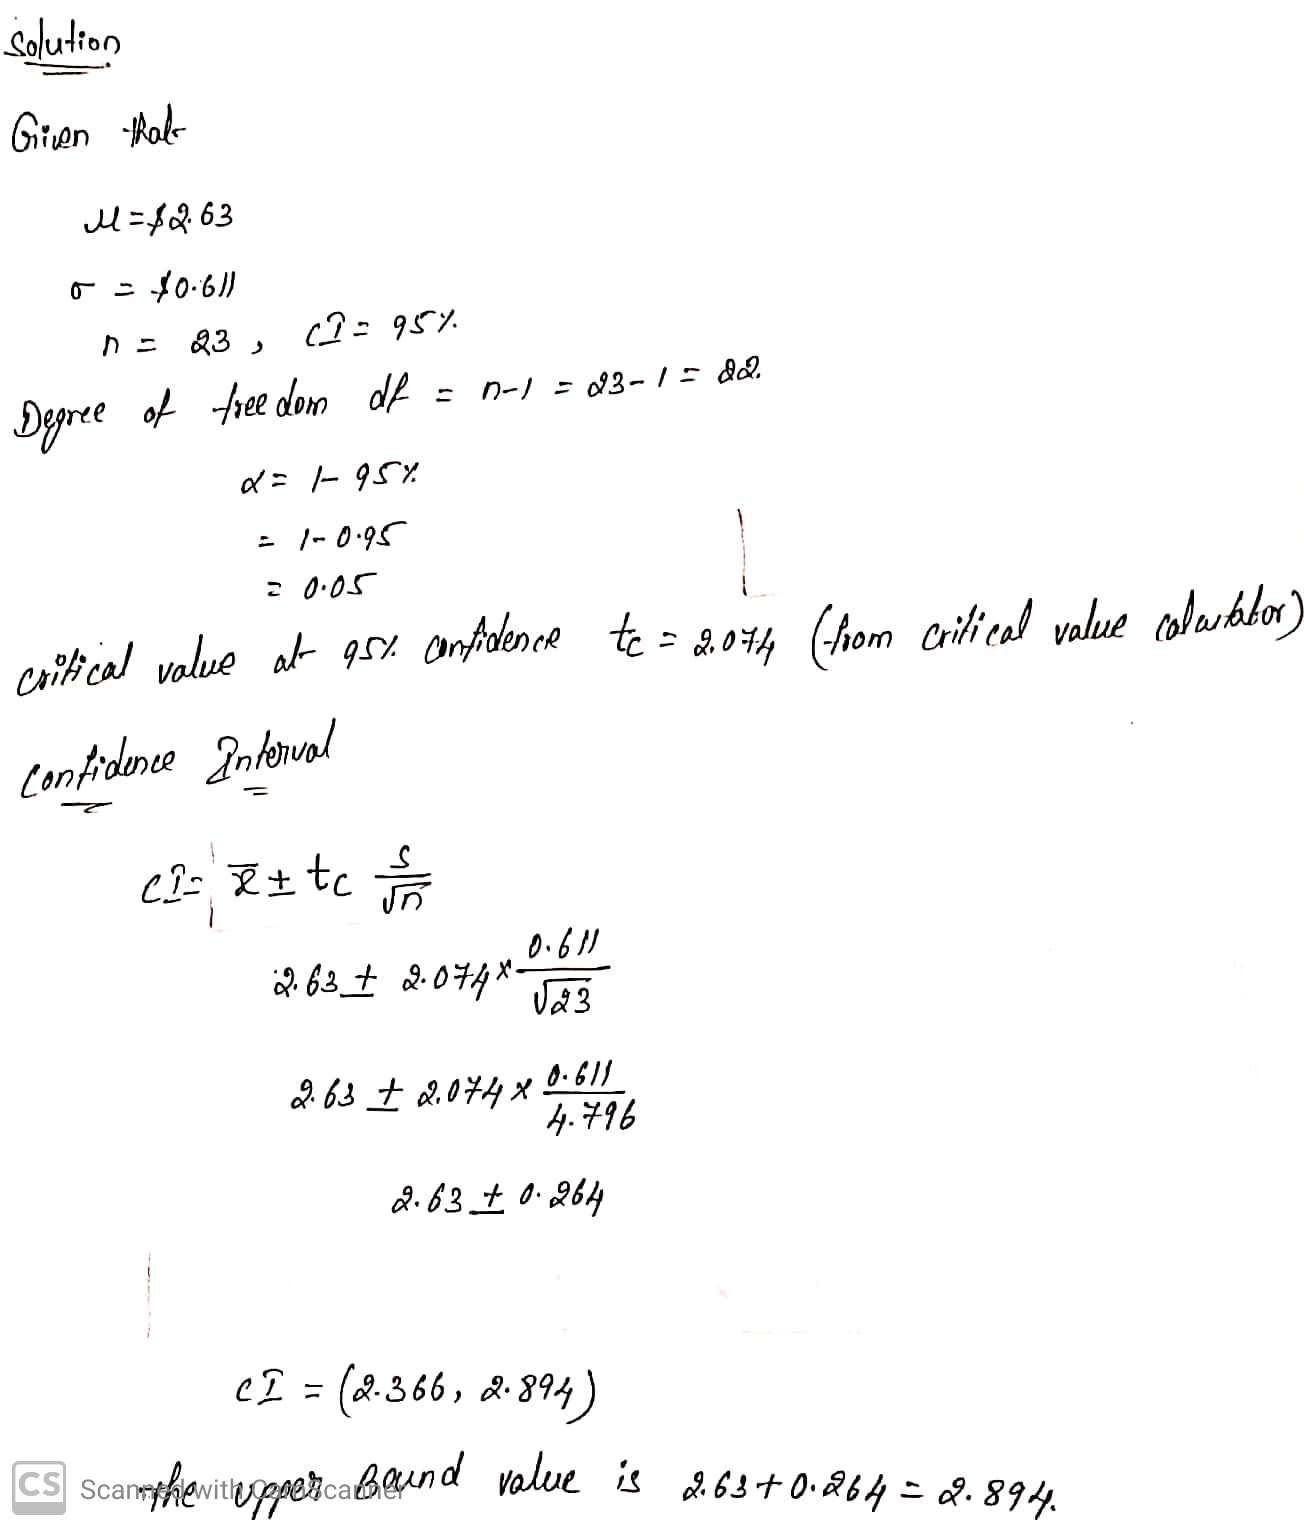 Solution
Given that
μ = $2.63
σ = $0.611
n = 23 , CI = 95%
Degree of freedom df = n-1 = 23-1 = 22.
α = 1- 95%
= 1- 0.95
= 0.05
critical value at 95% confidence tc = 2.074 (from critical value calculator)
Confidence Interval
CI = x̄ ± tc s/√n
2.63 ± 2.074 × 0.611/√23
2.63 ± 2.074 × 0.611/4.796
2.63 ± 0.264
CI = (2.366, 2.894)
the upper Bound value is 2.63 + 0.264 = 2.894.
CS Scanned with CamScanner